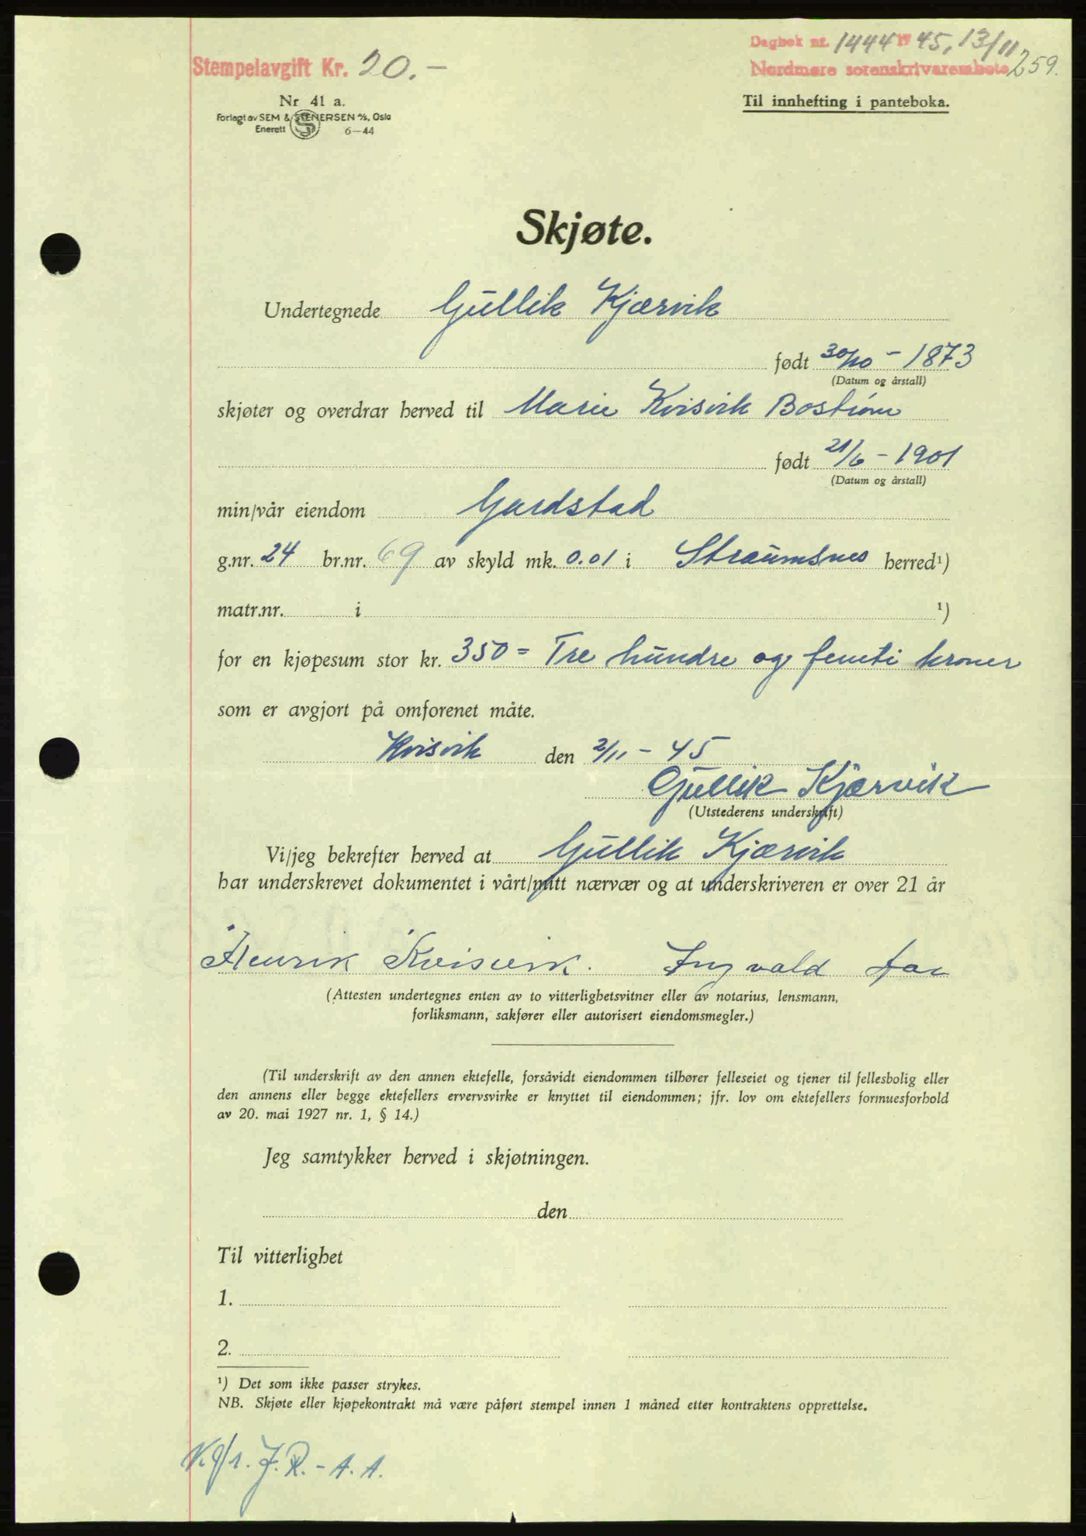 Dagbok nr. 1444 19 45, 13/11
Stempelavgift Kr. 20.-
Nordmøre sorenskrivarembete 259.
Nr 41 a.
Til innhefting i panteboka.
Forlagt av SEM & STENERSEN A/S, Oslo
Enerett S 6-44
Skjøte.
Undertegnede Gullik Kjærvik
født 30/10 - 1873
(Datum og årstall)
skjøter og overdrar herved til Marie Kvisvik Bostrøm
født 21/6 - 1901
(Datum og årstall)
min/vår eiendom Gardstad
g.nr. 24 br.nr. 69 av skyld mk. 0.01 i Straumsnes herred¹)
matr.nr. i ¹)
for en kjøpesum stor kr. 350= Tre hundre og femti kroner
som er avgjort på omforenet måte.
Kvisvik den 2/11 - 45
Gullik Kjærvik
(Utstederens underskrift)
Vi/jeg bekrefter herved at Gullik Kjærvik
har underskrevet dokumentet i vårt/mitt nærvær og at underskriveren er over 21 år
Henrik Kvisvik. Ingvald
(Attesten undertegnes enten av to vitterlighetsvitner eller av notarius, lensmann,
forliksmann, sakfører eller autorisert eiendomsmegler.)
(Til underskrift av den annen ektefelle, forsåvidt eiendommen tilhører felleseiet og tjener til fellesbolig eller
den annens eller begge ektefellers ervervsvirke er knyttet til eiendommen; jfr. lov om ektefellers formuesforhold
av 20. mai 1927 nr. 1, § 14.)
Jeg samtykker herved i skjøtningen.
den
Til vitterlighet
1.
2.
¹) Det som ikke passer strykes.
NB. Skjøte eller kjøpekontrakt må være påført stempel innen 1 måned etter kontraktens opprettelse.
J.R. - A.A.